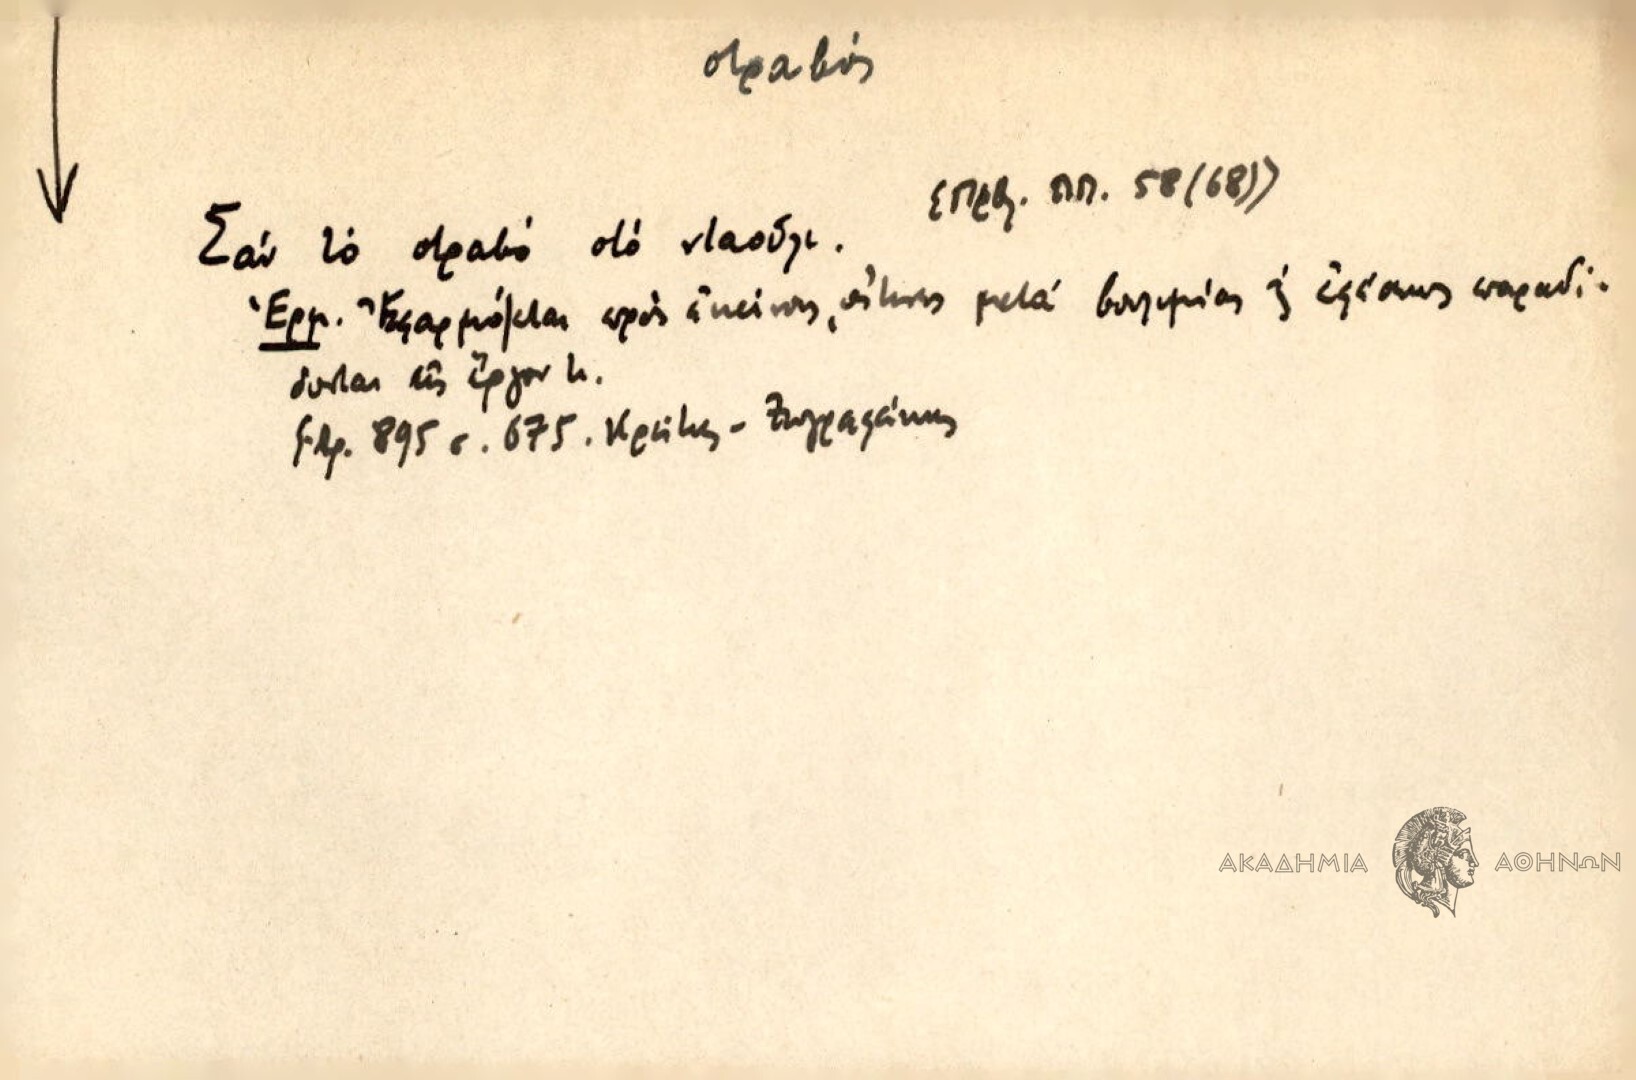 στραβός
(Πρβ. ΠΠ. 58(68))
Σάν τό στραβό στό νταούλι.
Ἑρμ. Ἐφαρμόζεται πρός ἐκείνους, οἵτινες μετά βουλιμίας ἤ ἐφέσεως παραδί-
δονται εἰς ἔργον τι.
Ἀρ. 895 σ. 675. Κρήτης - Ζωγραφάκης
ΑΚΑΔΗΜΙΑ ΑΘΗΝΩΝ